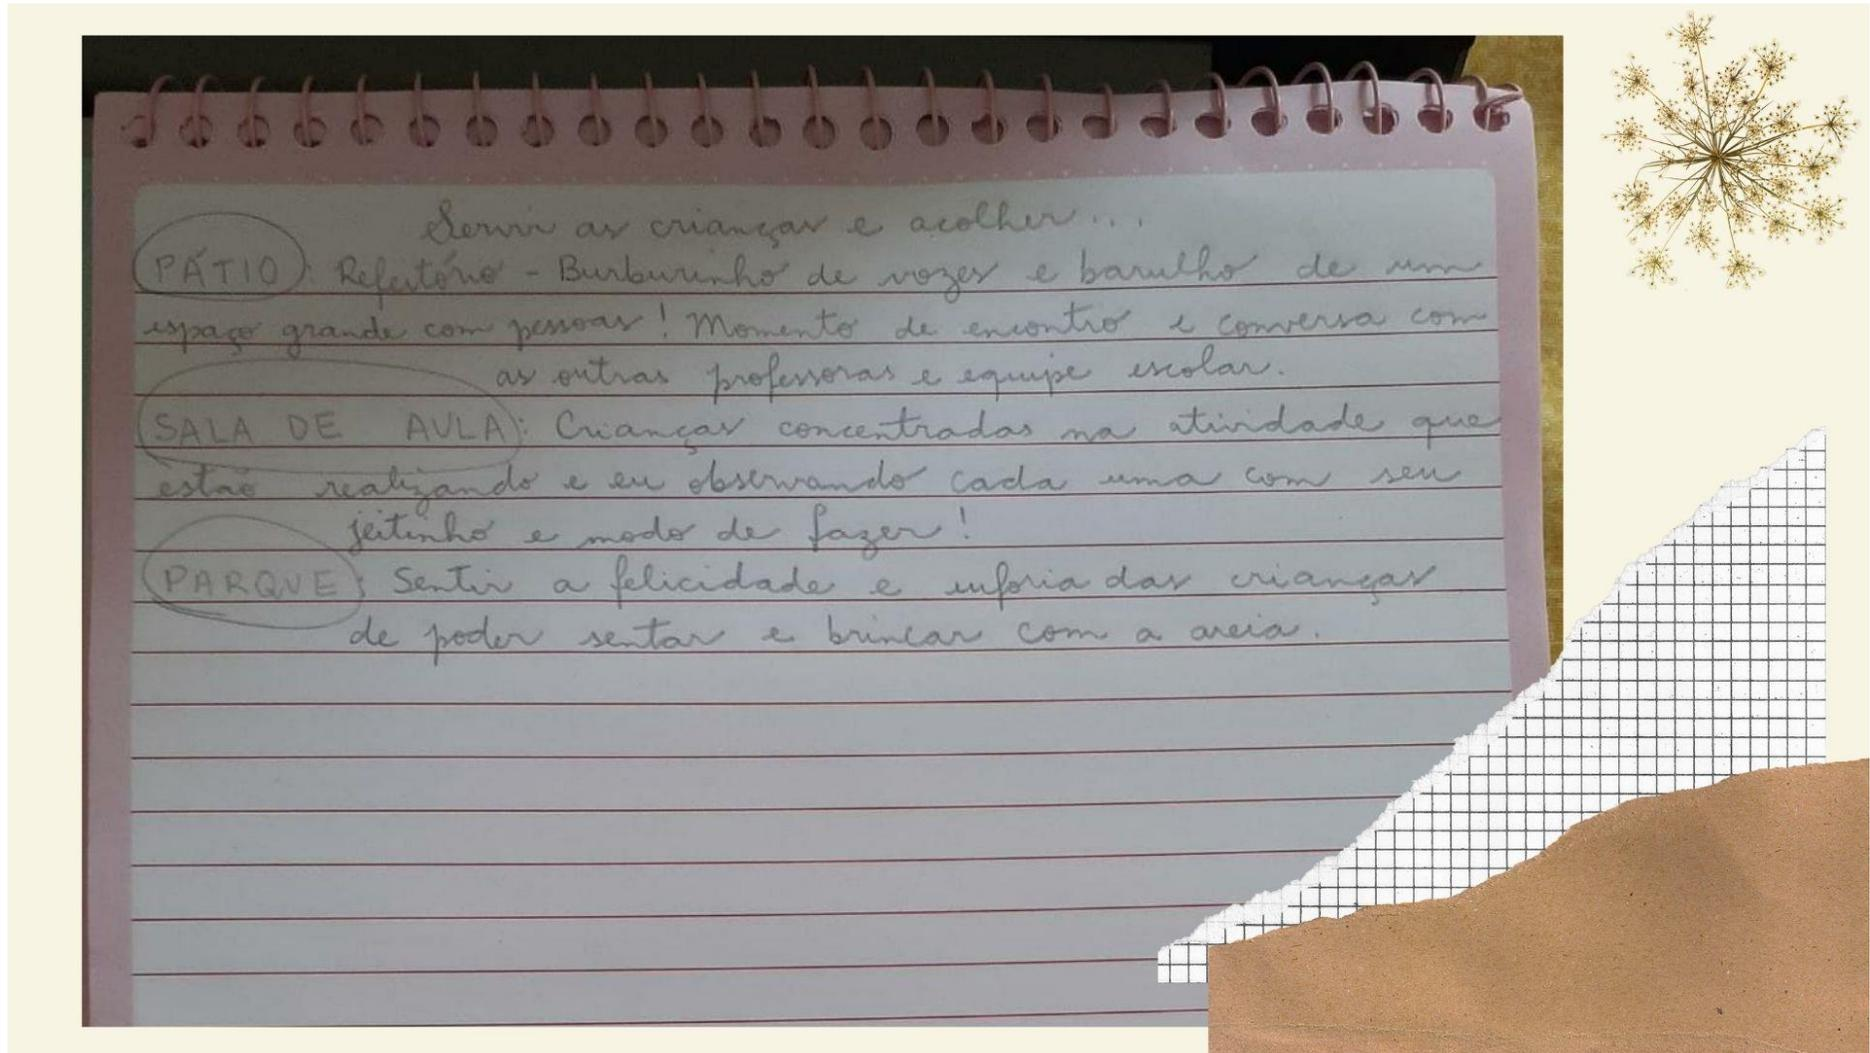 Servir as crianças e acolher...
PÁTIO: Refeitório - Burburinho de vozes e barulho de um
espaço grande com pessoas! Momento de encontro e conversa com
as outras professoras e equipe escolar.
SALA DE AULA: Crianças concentradas na atividade que
estão realizando e eu observando cada uma com seu
jeitinho e modo de fazer!
PARQUE: Sentir a felicidade e euforia das crianças
de poder sentar e brincar com a areia.